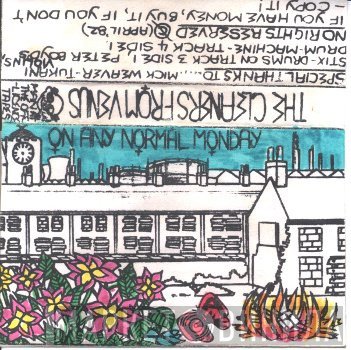 THE CLEANERS FROM VENUS
ON ANY NORMAL MONDAY
SPECIAL THANKS TO..... MICK WEAVER-TUKAN!
STIX-DRUMS ON TRACK 3 SIDE 1. PETER
DRUM-MACHINE-TRACK 4 SIDE 1.
NO RIGHTS RESERVED © (APRIL '82)
IF YOU HAVE MONEY, BUY IT, IF YOU DON'T
- COPY IT!